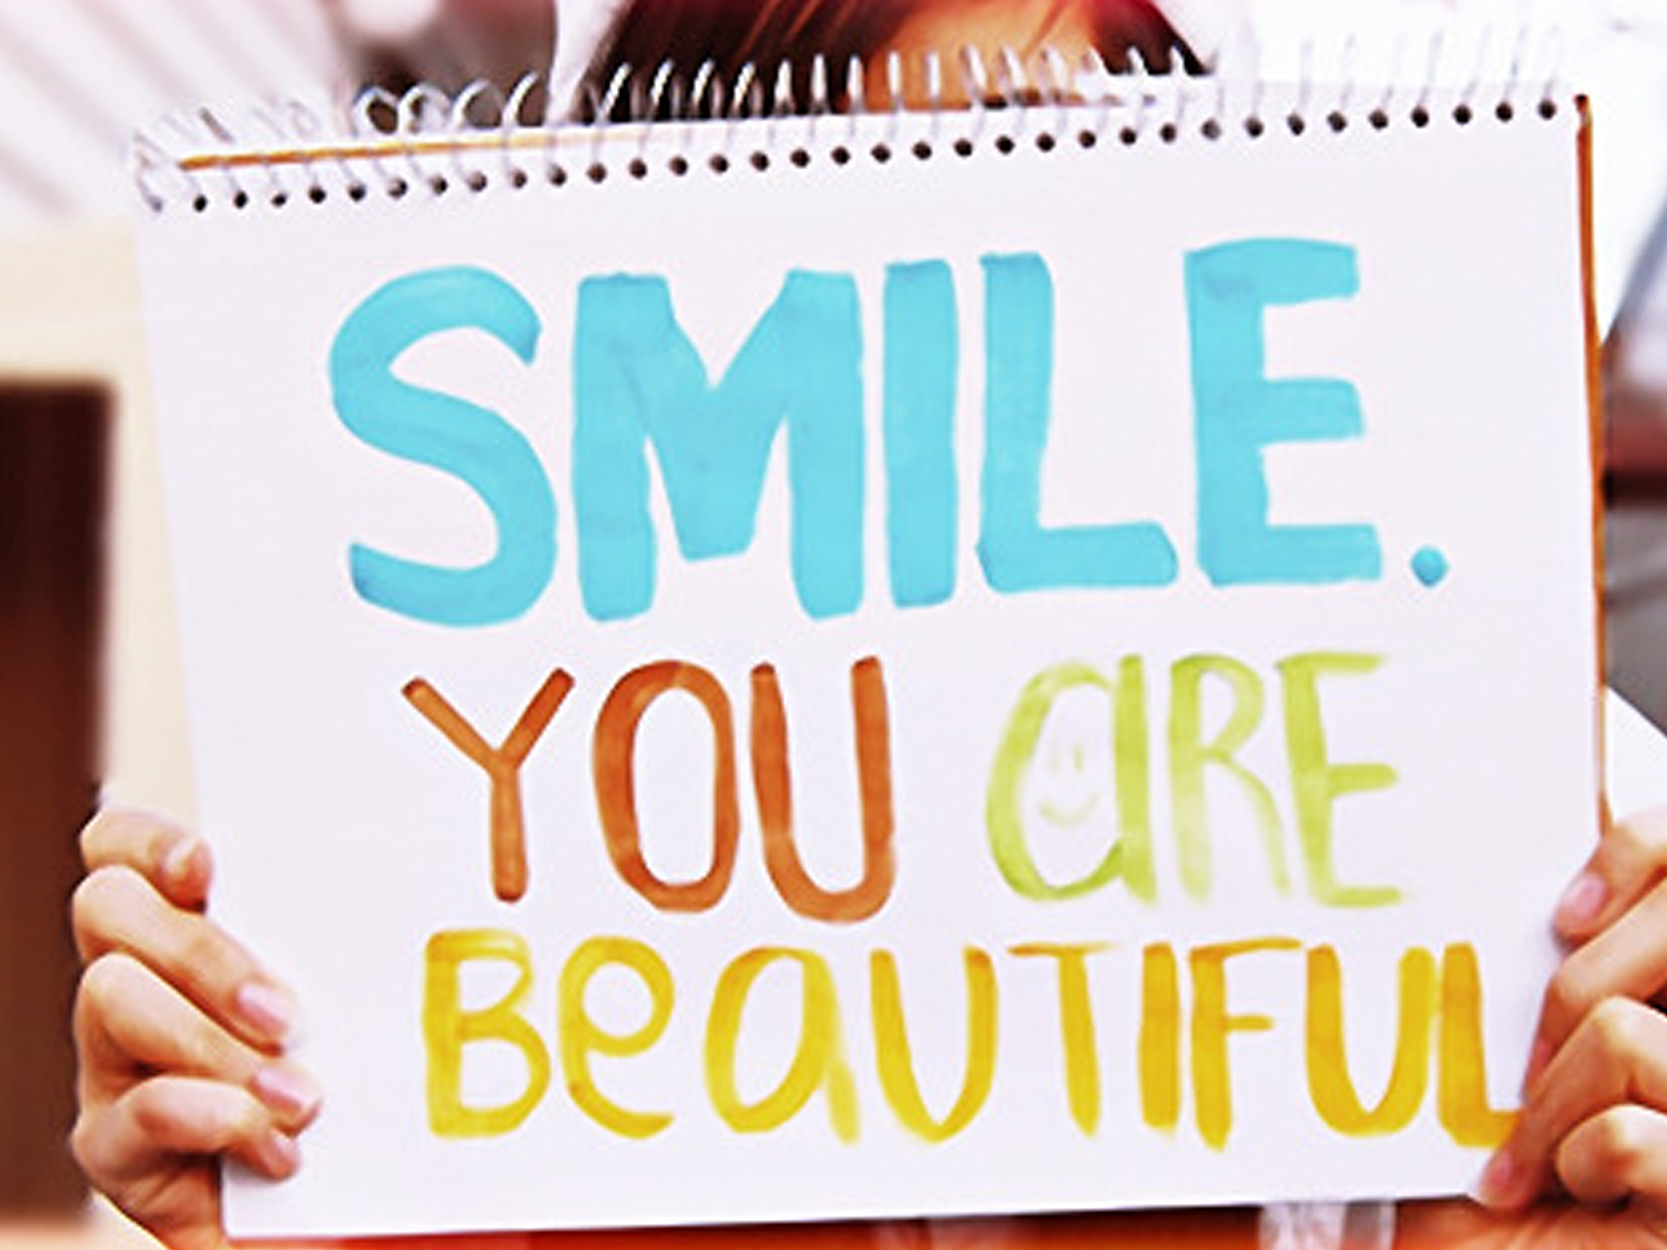 SMILE.
YOU aRE
BeaUTIFUL